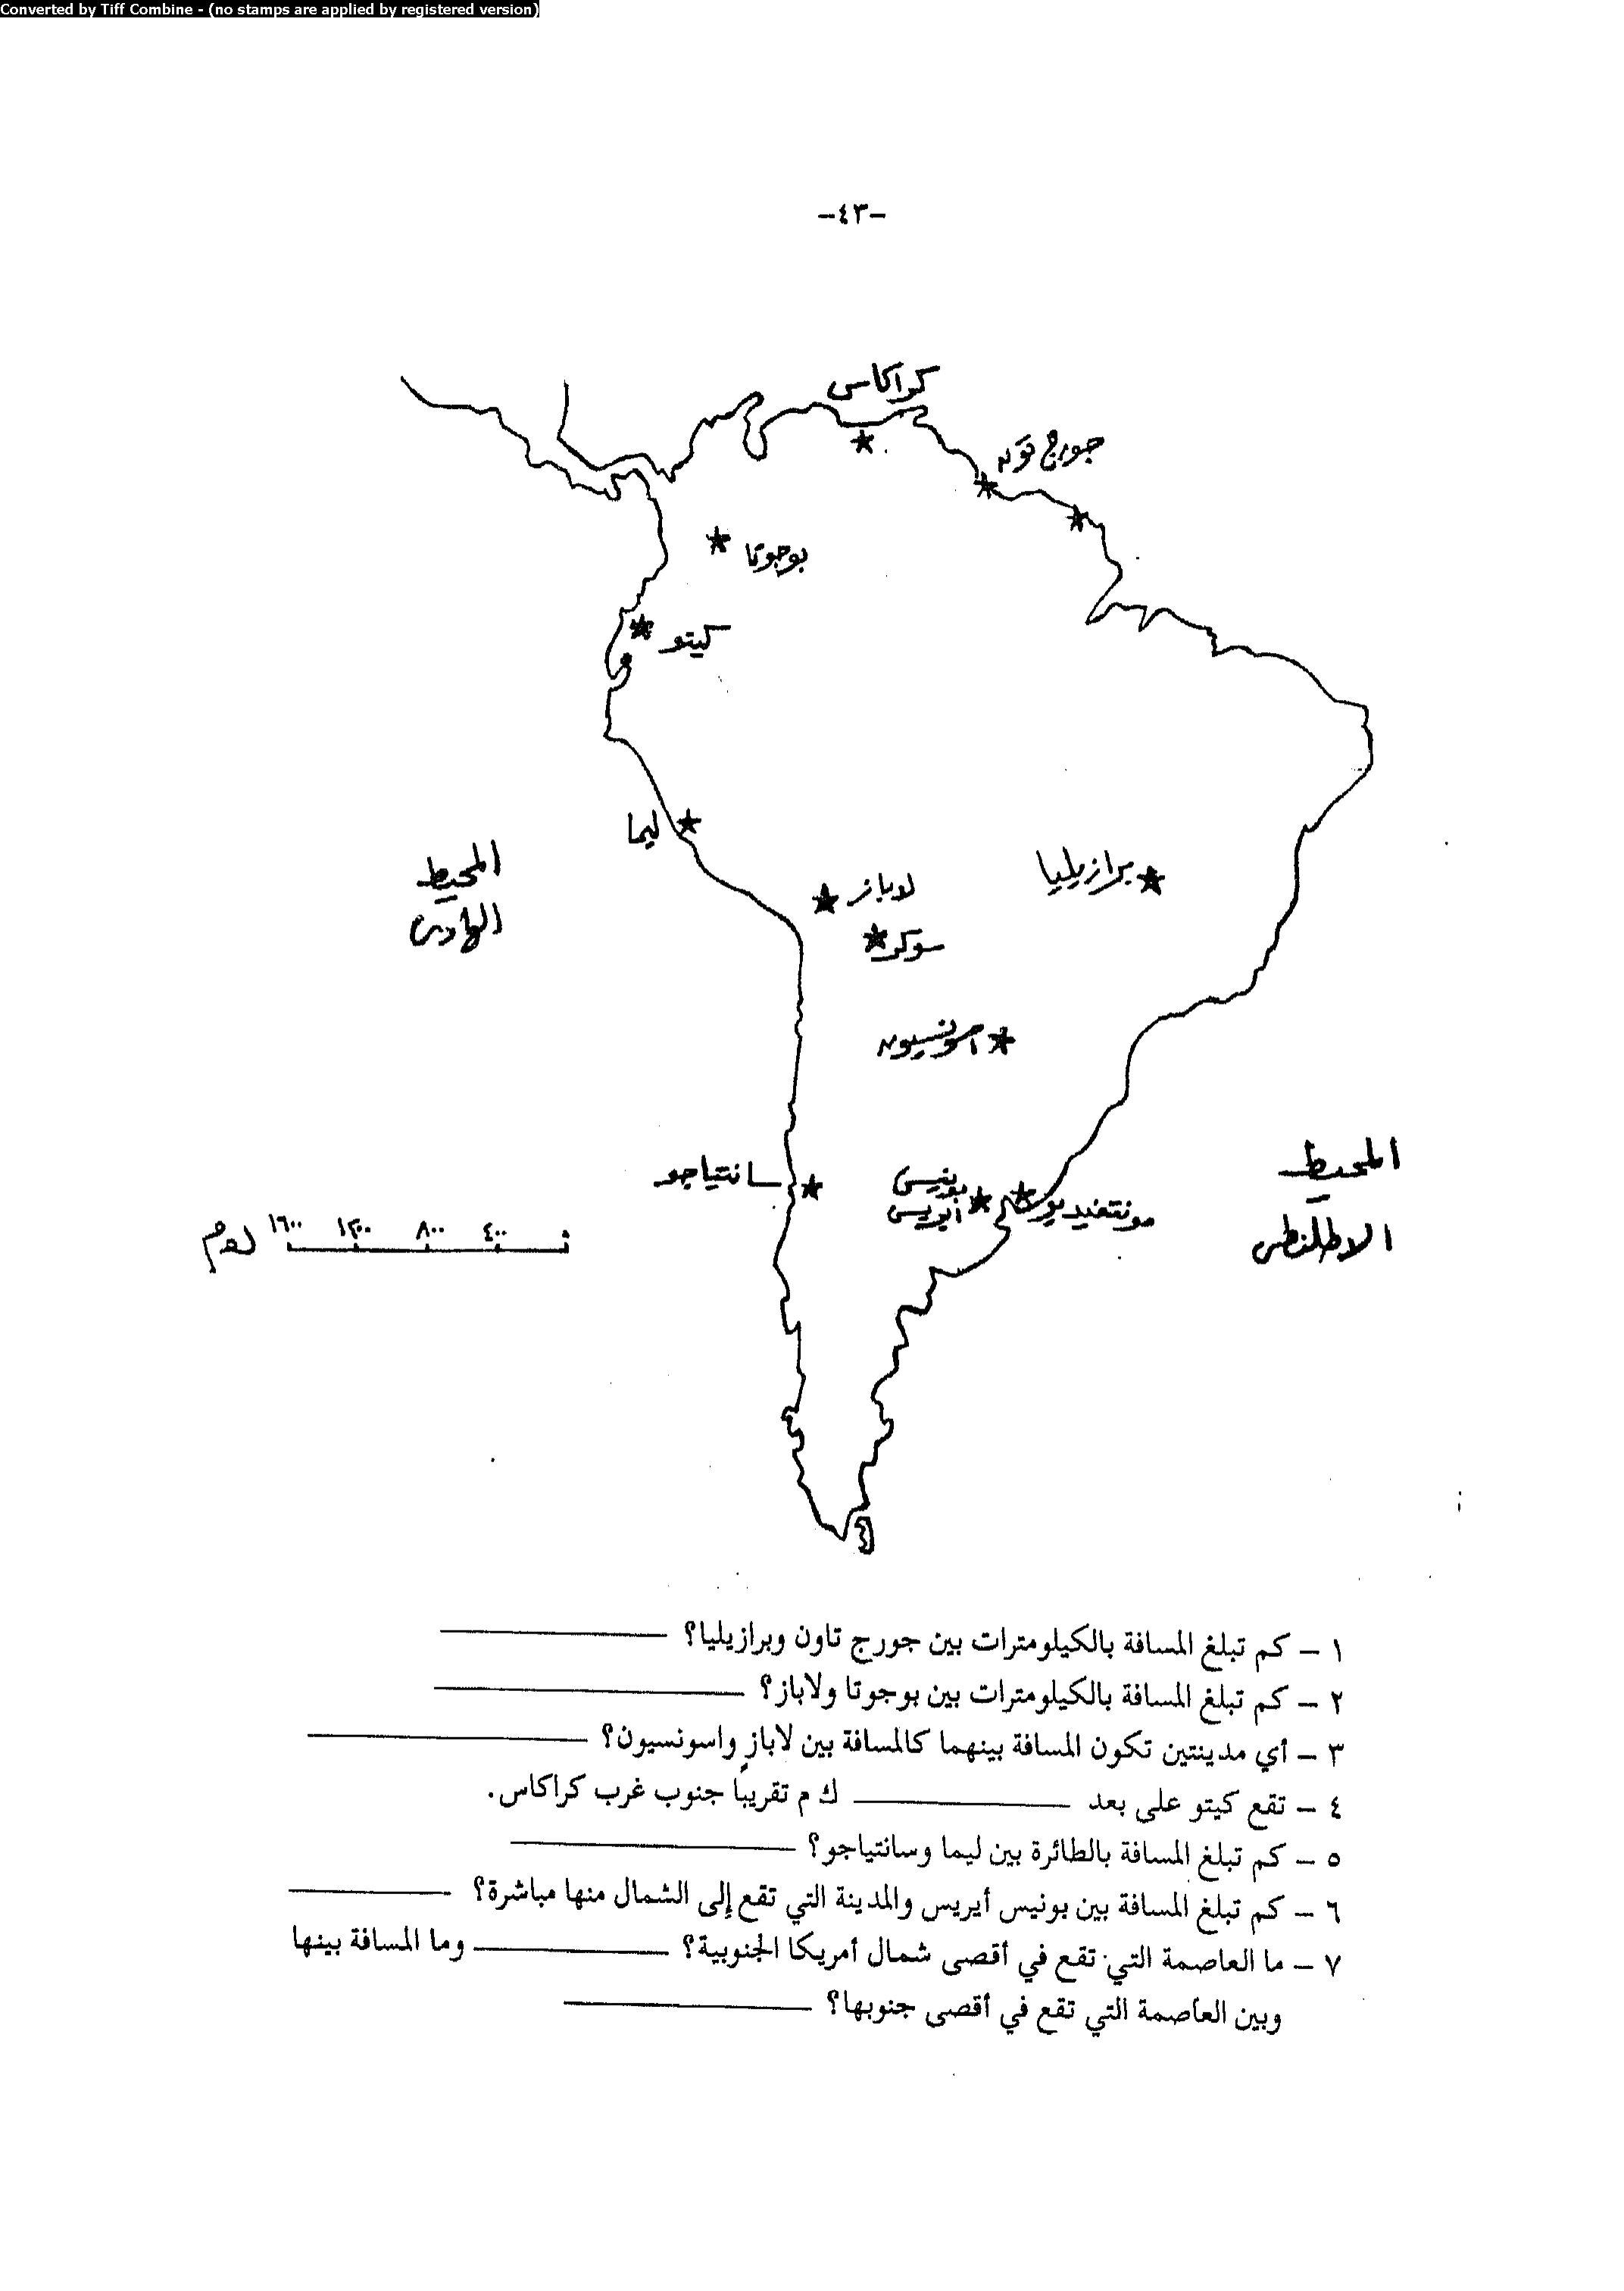 Converted by Tiff Combine - (no stamps are applied by registered version)
-٤٣-
كراكاس
جورج تون
بوجوتا
كيتو
ليما
المحيط
الهادى
لاباز
برازيليا
سوكر
اسونسيون
سانتياجو
بونيس
ايريس
مونتفيديو
المحيط
الاطلنطى
١٦٠٠ ١٢٠٠ ٨٠٠ ٤٠٠ ٠
ك م
١ – كم تبلغ المسافة بالكيلومترات بين جورج تاون وبرازيليا؟
٢ – كم تبلغ المسافة بالكيلومترات بين بوجوتا ولاباز؟
٣ – أي مدينتين تكون المسافة بينهما كالمسافة بين لاباز واسونسيون؟
٤ – تقع كيتو على بعد ك م تقريبًا جنوب غرب كراكاس.
٥ – كم تبلغ المسافة بالطائرة بين ليما وسانتياجو؟
٦ – كم تبلغ المسافة بين بونيس أيريس والمدينة التي تقع إلى الشمال منها مباشرة؟
٧ – ما العاصمة التي تقع في أقصى شمال أمريكا الجنوبية؟ وما المسافة بينها
وبين العاصمة التي تقع في أقصى جنوبها؟